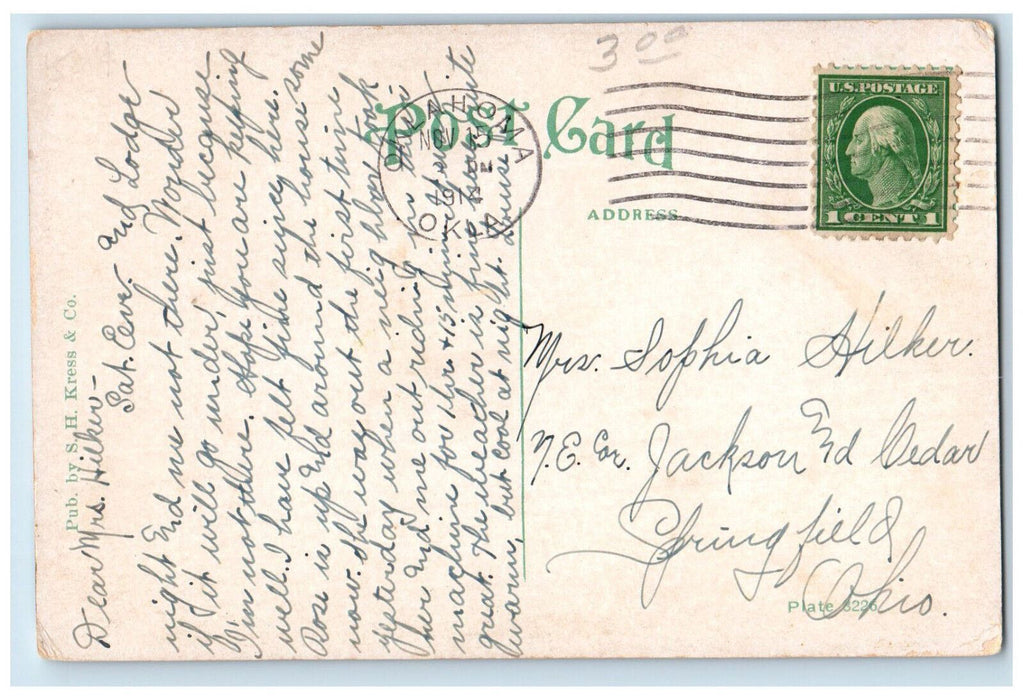 3 00
Post Card
ADDRESS
U.S. POSTAGE
1 CENT 1
HOMA
NOV 15
OKLA
Pub. by S. H. Kress & Co.
Dear Mrs. Hilker—
Sat. Eve. and Lodge
night and me not there. Wonder
if it will go under, just because
I'm not there. Hope you are keeping
well. I have felt fine since here.
Rose is up and around the house some
now. She was out the first time
yesterday when a neighbor took
her and me out riding in their
machine for 1 hr + 15 min.
great. The weather is fine quite
warm, but cool at night. Louise
Mrs. Sophia Hilker.
N.E. Cor. Jackson and Cedar
Springfield
Ohio.
Plate 3226